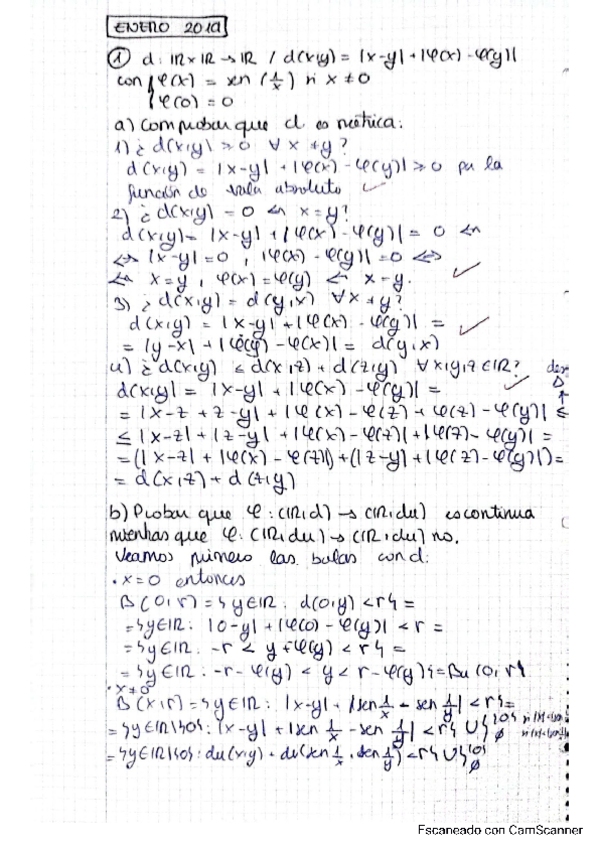 ENERO 2019
① d: ℝxℝ → ℝ / d(x,y) = |x-y| + |φ(x) - φ(y)|
con { φ(x) = sen (1/x) si x ≠ 0
{ φ(0) = 0
a) Comprobar que d es métrica:
1) ¿ d(x,y) > 0 ∀ x ≠ y ?
d(x,y) = |x-y| + |φ(x) - φ(y)| > 0 por la
función de valor absoluto ✓
2) ¿ d(x,y) = 0 ⇔ x = y?
d(x,y) = |x-y| + |φ(x) - φ(y)| = 0 ⇔
⇔ |x-y| = 0 , |φ(x) - φ(y)| = 0 ⇔
⇔ x = y , φ(x) = φ(y) ⇐ x = y. ✓
3) ¿ d(x,y) = d(y,x) ∀ x ≠ y?
d(x,y) = |x-y| + |φ(x) - φ(y)| = ✓
= |y-x| + |φ(y) - φ(x)| = d(y,x)
4) ¿ d(x,y) ≤ d(x,z) + d(z,y) ∀ x,y,z ∈ ℝ?
d(x,y) = |x-y| + |φ(x) - φ(y)| = ✓
= |x-z + z-y| + |φ(x) - φ(z) + φ(z) - φ(y)| ≤
≤ |x-z| + |z-y| + |φ(x) - φ(z)| + |φ(z) - φ(y)| =
= (|x-z| + |φ(x) - φ(z)|) + (|z-y| + |φ(z) - φ(y)|) =
= d(x,z) + d(z,y)
b) Probar que φ: (ℝ,d) → (ℝ,du) es continua
mientras que φ: (ℝ,du) → (ℝ,du) no.
Veamos primero las bolas con d:
· x = 0 entonces
B(0,r) = {y∈ℝ: d(0,y) < r} =
= {y∈ℝ: |0-y| + |φ(0) - φ(y)| < r =
= {y∈ℝ: -r < y + φ(y) < r} =
= {y∈ℝ: -r - φ(y) < y < r - φ(y)} = Bu(0,r)
· x ≠ 0
B(x,r) = {y∈ℝ: |x-y| + |sen 1/x - sen 1/y| < r} =
= {y∈ℝ\{0}: |x-y| + |sen 1/x - sen 1/y| < r} ∪ { {0} ∅
= {y∈ℝ\{0}: du(x,y) + du(sen 1/x, sen 1/y) < r} ∪ { {0} ∅
Escaneado con CamScanner